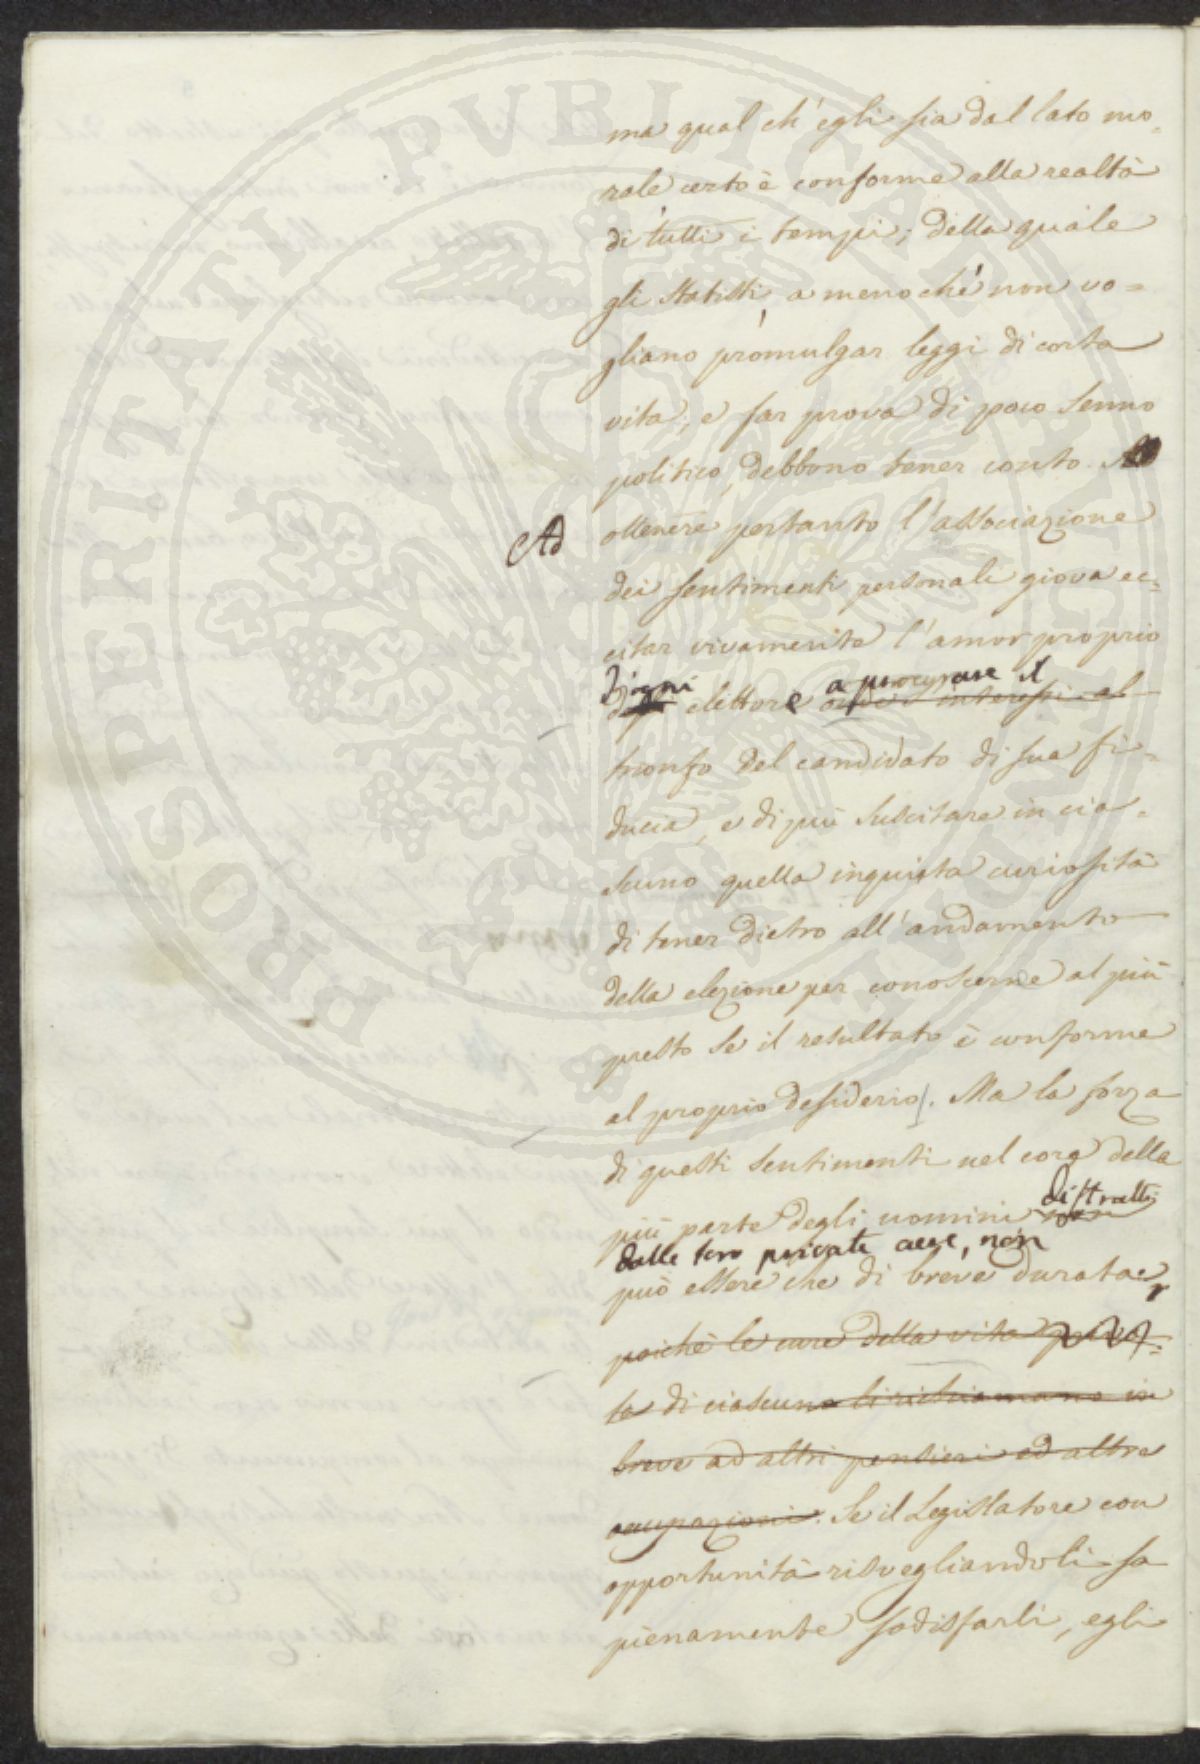 ma qual ch'egli sia dal lato mo-
rale, certo è conforme alla realtà
di tutti i tempi; della quale
gli statisti, a meno chè non vo=
gliano promulgar leggi di corta
vita, e far prova di poco senno
politico, debbono tener conto.
Ad ottenere pertanto l'associazione
dei sentimenti personali giova ec-
citar vivamente l'amor proprio
d'ogni a procurare il
elettore onde s'interessi al
trionfo del candidato di sua fi-
ducia, e di più suscitare in cia-
scuno quella inquieta curiosità
di tener dietro all'andamento
della elezione per conoscerne al più
presto se il resultato è conforme
al proprio desiderio. Ma la forza
di questi sentimenti nel core della
distratti
più parte degli uomini non
dalle loro private cure, non
può essere che di breve durata.
poichè le cure della vita priva-
ta di ciascuno li richiamano in
breve ad altri pensieri ed altre
occupazioni. Se il Legislatore con
opportunità risvegliandoli sa
pienamente sodisfarli, egli
PROSPERITATI PVBLICAE